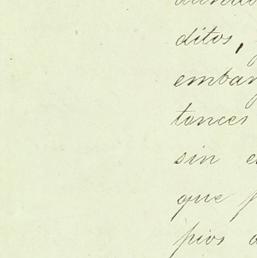 ditos,
embar
tonces
sin e
que p
pios a